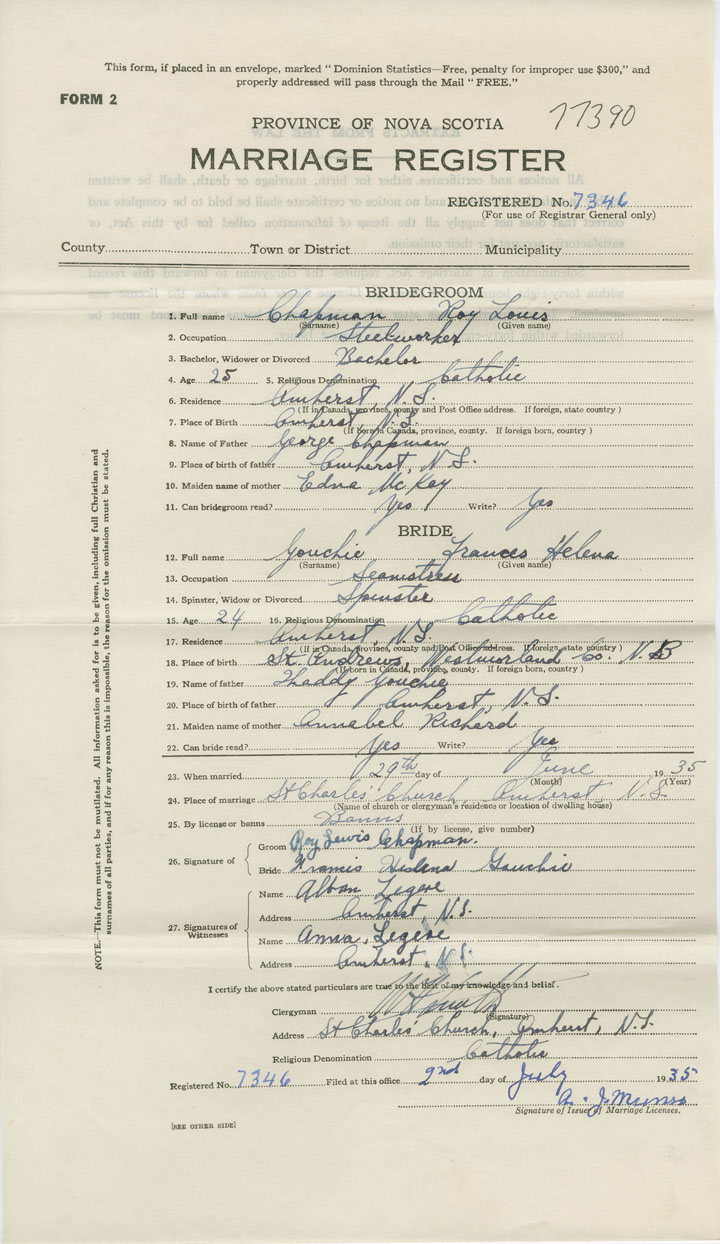 This form, if placed in an envelope, marked "Dominion Statistics—Free, penalty for improper use $300," and
properly addressed will pass through the Mail "FREE."
FORM 2
77390
PROVINCE OF NOVA SCOTIA
MARRIAGE REGISTER
REGISTERED No. 7346
(For use of Registrar General only)
County Town or District Municipality
BRIDEGROOM
1. Full name Chapman Roy Louis
(Surname) (Given name)
2. Occupation Steelworker
3. Bachelor, Widower or Divorced Bachelor
4. Age 25 5. Religious Denomination Catholic
6. Residence Amherst, N.S.
(If in Canada, province, county and Post Office address. If foreign, state country)
7. Place of Birth Amherst, N.S.
(If born in Canada, province, county. If foreign born, country)
8. Name of Father George Chapman
9. Place of birth of father Amherst, N.S.
10. Maiden name of mother Edna McKay
11. Can bridegroom read? Yes Write? Yes
BRIDE
12. Full name Youchie Frances Helena
(Surname) (Given name)
13. Occupation Seamstress
14. Spinster, Widow or Divorced Spinster
15. Age 24 16. Religious Denomination Catholic
17. Residence Amherst, N.S.
(If in Canada, province, county and Post Office address. If foreign, state country)
18. Place of birth St. Andrews, Westmorland Co. N.B
(If born in Canada, province, county. If foreign born, country)
19. Name of father Thaddy Youchie
20. Place of birth of father Amherst, N.S.
21. Maiden name of mother Annabel Richard
22. Can bride read? Yes Write? Yes
23. When married 29th day of June 1935
(Month) (Year)
24. Place of marriage St Charles' Church, Amherst, N.S.
(Name of church or clergyman's residence or location of dwelling house)
25. By license or banns Banns
(If by license, give number)
26. Signature of Groom Roy Lewis Chapman.
Bride Francis Helena Gouchie
27. Signatures of Witnesses Name Alban Legere
Address Amherst, N.S.
Name Anna Legere
Address Amherst, N.S.
I certify the above stated particulars are true to the best of my knowledge and belief.
Clergyman
(Signature)
Address St Charles' Church, Amherst, N.S.
Religious Denomination Catholic
Registered No. 7346 Filed at this office 2nd day of July 1935
A. J. Munro
Signature of Issuer of Marriage Licenses.
[SEE OTHER SIDE]
NOTE.—This form must not be mutilated. All information asked for is to be given, including full Christian and
surnames of all parties, and if for any reason this is impossible, the reason for the omission must be stated.